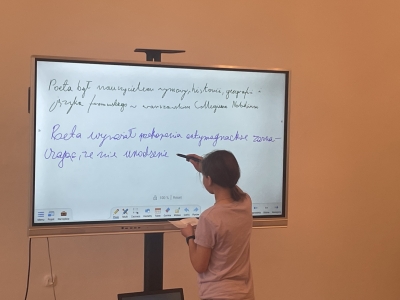 Poeta był nauczycielem wymowy, historii, geografii i
języka francuskiego w warszawskim Collegium Nobilium
Poeta wyrażał przekonania antymagnackie zazna-
czając, że nie urodzenie